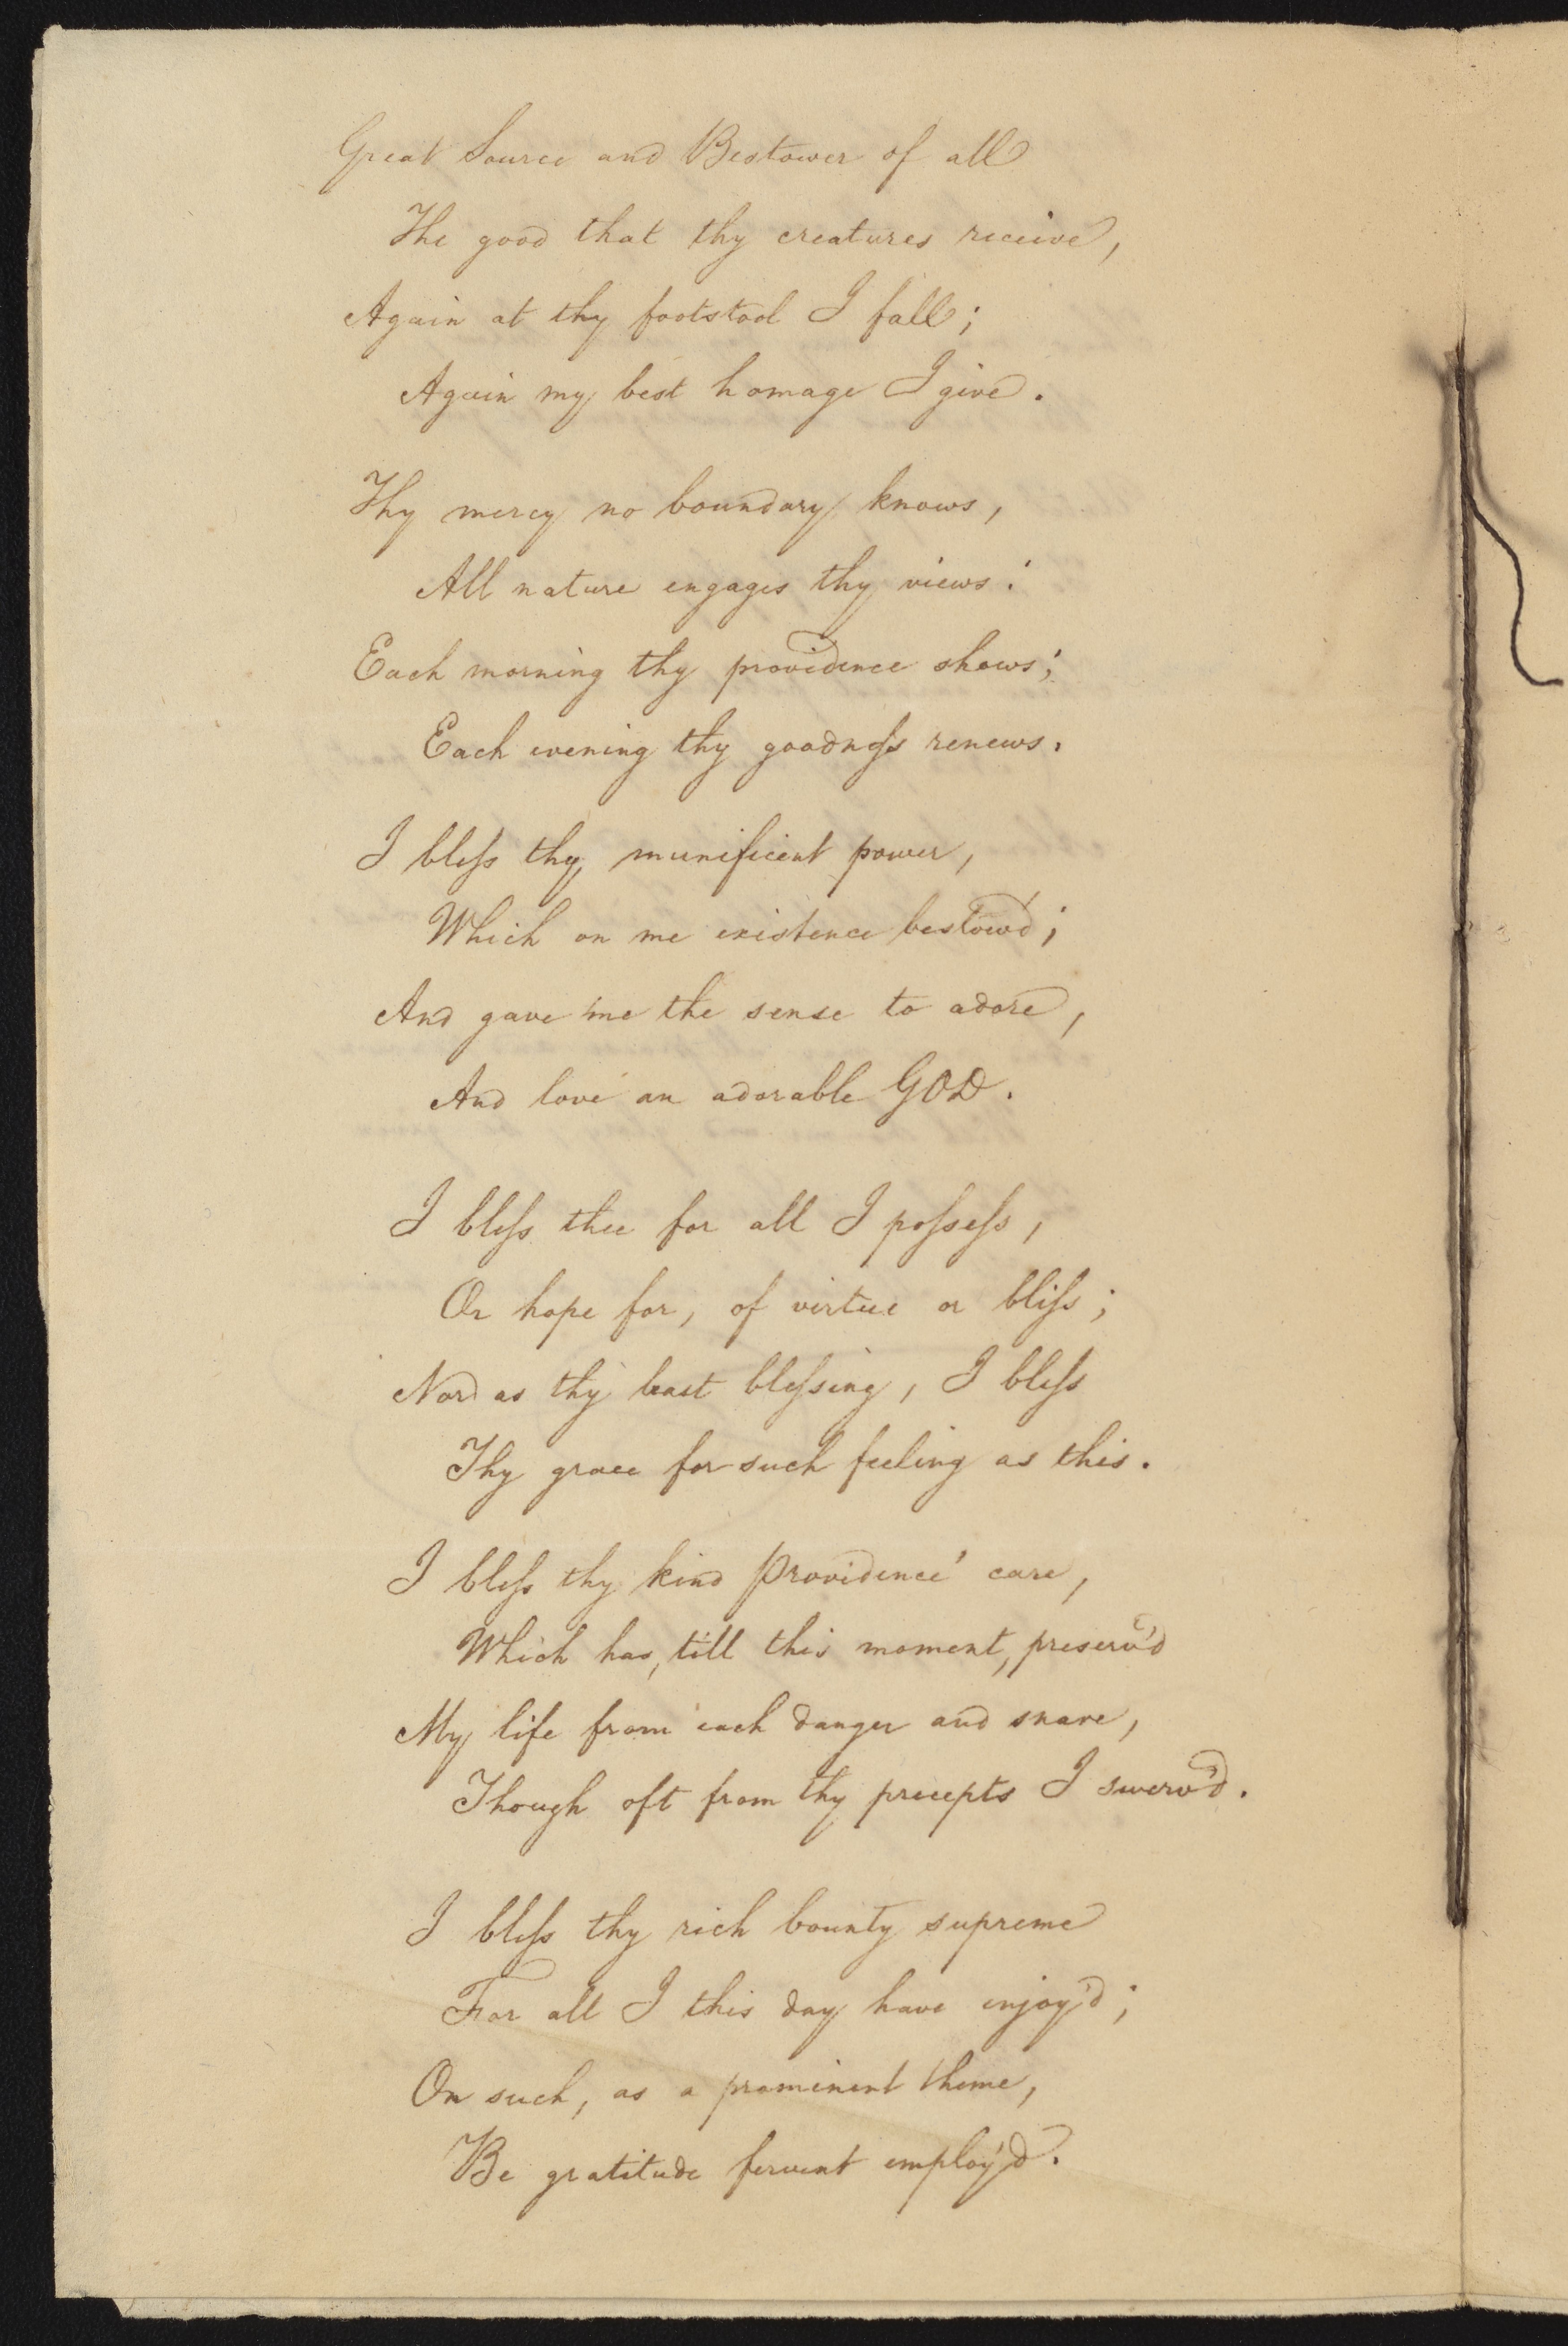 Great Source and Bestower of all
The good that thy creatures receive,
Again at thy footstool I fall;
Again my best homage I give.
Thy mercy no boundary knows,
All nature engages thy views:
Each morning thy providence shows;
Each evening thy goodneſs renews.
I bleſs thy munificent power,
Which on me existence bestow'd;
And gave me the sense to adore,
And love an adorable GOD.
I bleſs thee for all I poſseſs,
Or hope for, of virtue or bliſs;
Nor as thy least bleſsing, I bleſs
Thy grace for such feeling as this.
I bleſs thy kind Providence' care,
Which has, till this moment, preserv'd
My life from each danger and snare,
Though oft from thy precepts I swerv'd.
I bleſs thy rich bounty supreme
For all I this day have enjoy'd;
On such, as a prominent theme,
Be gratitude fervent employ'd.